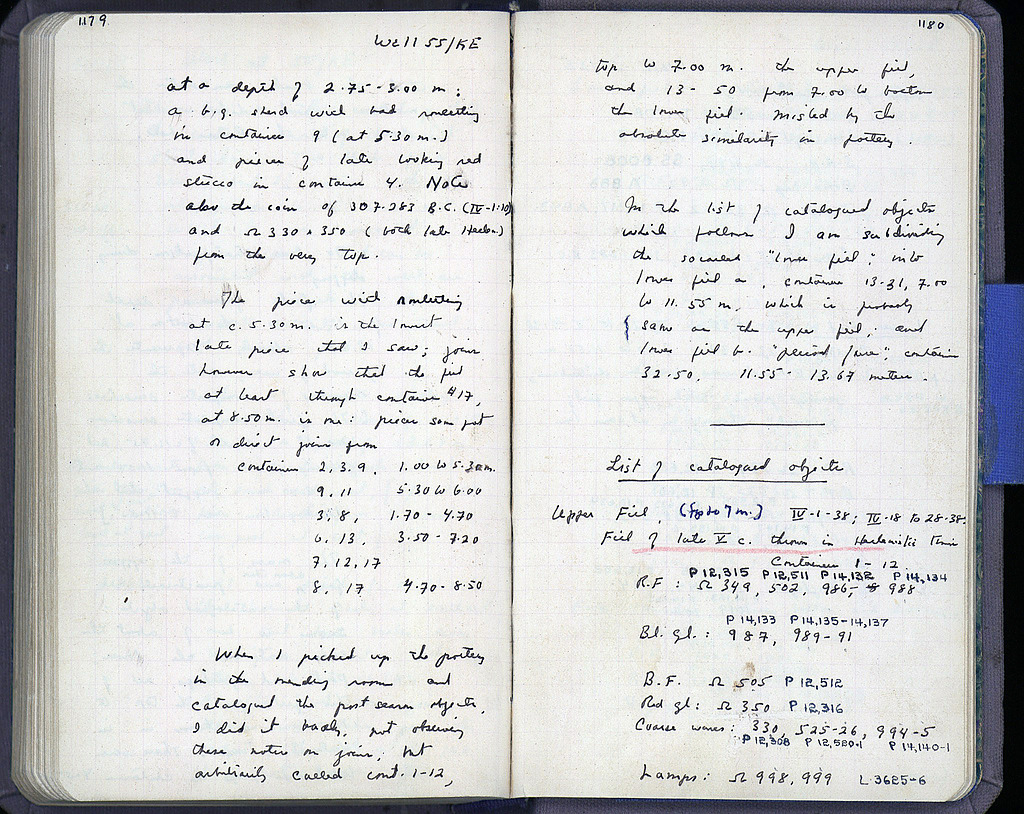 1179
Well 55/KE
at a depth of 2.75-3.00 m;
a b.g. sherd with bad rouletting
in container 9 (at 5.30 m.)
and pieces of late looking red
stucco in container 4. Note
also the coin of 307-283 B.C. (IV-1-10)
and Ω 330 + 350 (both late Hellen.)
from the very top.
The piece with rouletting
at c. 5.30 m. is the lowest
late piece that I saw; joins
however show that the fill
at least through container #17,
at 8.50 m. is one: pieces same pot
or direct joins from
containers 2, 3, 9, 1.00 to 5.30 m.
9, 11 5.30 to 6.00
3, 8, 1.70 - 4.70
6, 13, 3.50 - 7.20
7, 12, 17
8, 17 4.70 - 8.50
When I picked up the pottery
in the mending room and
catalogued the post season objects,
I did it badly, not observing
these notes on joins; but
arbitrarily called cont. 1-12,
1180
top to 7.00 m. the upper fill,
and 13-50 from 7.00 to bottom
the lower fill. Misled by the
absolute similarity in pottery.
In the list of catalogued objects
which follows I am subdividing
the so called "lower fill" into
lower fill a, container 13-31, 7.00
to 11.55 m, which is probably
same as the upper fill; and
lower fill b. "period of use", container
32-50, 11.55 - 13.67 meters.
List of catalogued objects
Upper Fill, (Top to 7 m.) IV-1-38; IV-18 to 28-38.
Fill of late V c. thrown in Hellenistic times
Containers 1-12
P 12,315 P 12,511 P 14,132 P 14,134
R.F: Ω 349, 502, 986, 988
P 14,133 P 14,135-14,137
Bl. gl.: 987, 989-91
B.F. Ω 505 P 12,512
Red gl: Ω 350 P 12,316
Coarse wares: 330, 525-26, 994-5
P 12,308 P 12,520-1 P 14,140-1
Lamps: Ω 998, 999 L 3625-6